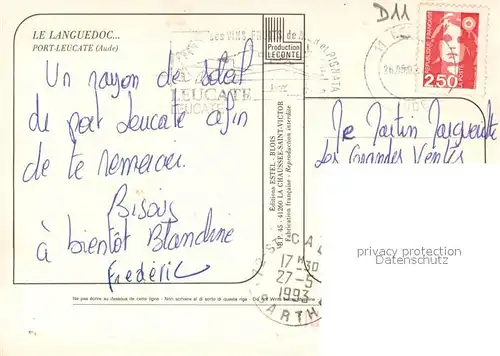 LE LANGUEDOC...
PORT-LEUCATE (Aude)
Un rayon de soleil
du port Leucate afin
de te remercier.
Bisous
à bientôt Blandine
Frédéric
Production
LECONTE
Éditions ESTEL - BLOIS
B.P. 45 - 41260 LA CHAUSSÉE-SAINT-VICTOR
Fabrication française - Reproduction interdite
des VINS
LEUCATE
LEUCATE
D11
11
AUDE
RÉPUBLIQUE FRANÇAISE
2,50
LA POSTE
Martin Marguerite
Les Grandes Ventes
privacy protection
Datenschutz
17 H 30
27-5
1993
Ne pas écrire au dessous de cette ligne - Non scrivere al di sotto di questa riga